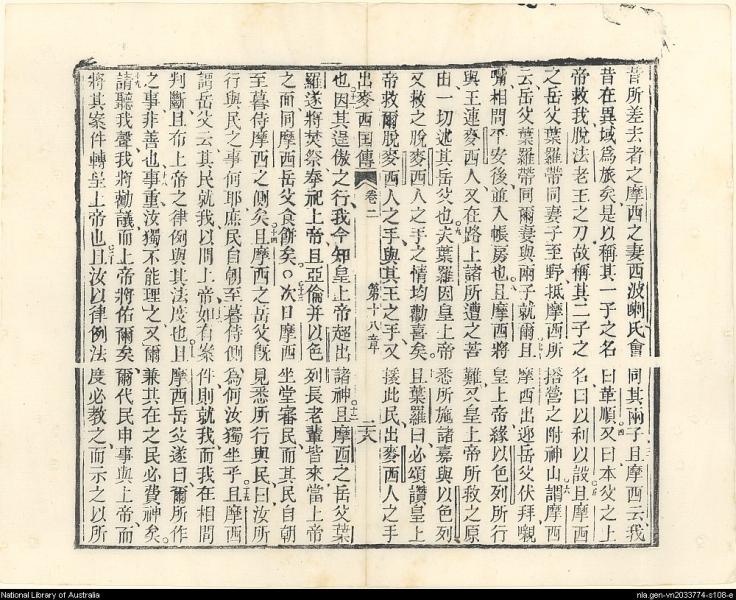 昔所差去者之摩西之妻西波喇氏會同其兩子且摩西云我
昔在異域爲旅矣是以稱其一子之名曰革順又曰本父之上
帝救我脫法老王之刀故稱其二子之名曰以利以設且摩西
之岳父葉羅帶同妻子至野抵摩西所搭營之附神山謂摩西
云岳父葉羅帶同爾妻與兩子就爾且摩西出迎岳父伏拜嘴
嘴相問平安後並入帳房也且摩西將皇上帝緣以色列所行
與王連麥西人又在路上諸所遭之菩難又皇上帝所救之原
由一切述其岳父也夫葉羅因皇上帝悉所施諸嘉與以色列
又救之脫麥西人之手之情均勸喜矣且葉羅曰必頌讚皇上
帝救爾脫麥西人之手與其王之手又援此民出麥西人之手
出麥西国傳 卷二 第十八章 二八
也因其逞傲之行我今知皇上帝超出諸神且摩西之岳父葉
羅遂將焚祭奉祀上帝且亞倫并以色列長老輩皆來當上帝
之面同摩西岳父食餅矣次日摩西坐堂審民而其民自朝
至暮侍摩西之側矣且摩西之岳父旣見悉所行與民曰汝所
行與民之事何耶庶民自朝至暮侍側爲何汝獨坐乎且摩西
謂岳父云其民就我以問上帝如有案件則就我而我在相問
判斷且布上帝之律例與其法度也且摩西岳父遂曰爾所作
之事非善也事重汝獨不能理之又爾兼其在之民必費神矣
請聽我聲我將勸議而上帝將佑爾矣爾代民申事與上帝而
將其案件轉呈上帝也且汝以律例法度必教之而示之以所
National Library of Australia
nla.gen-vn2033774-s108-e